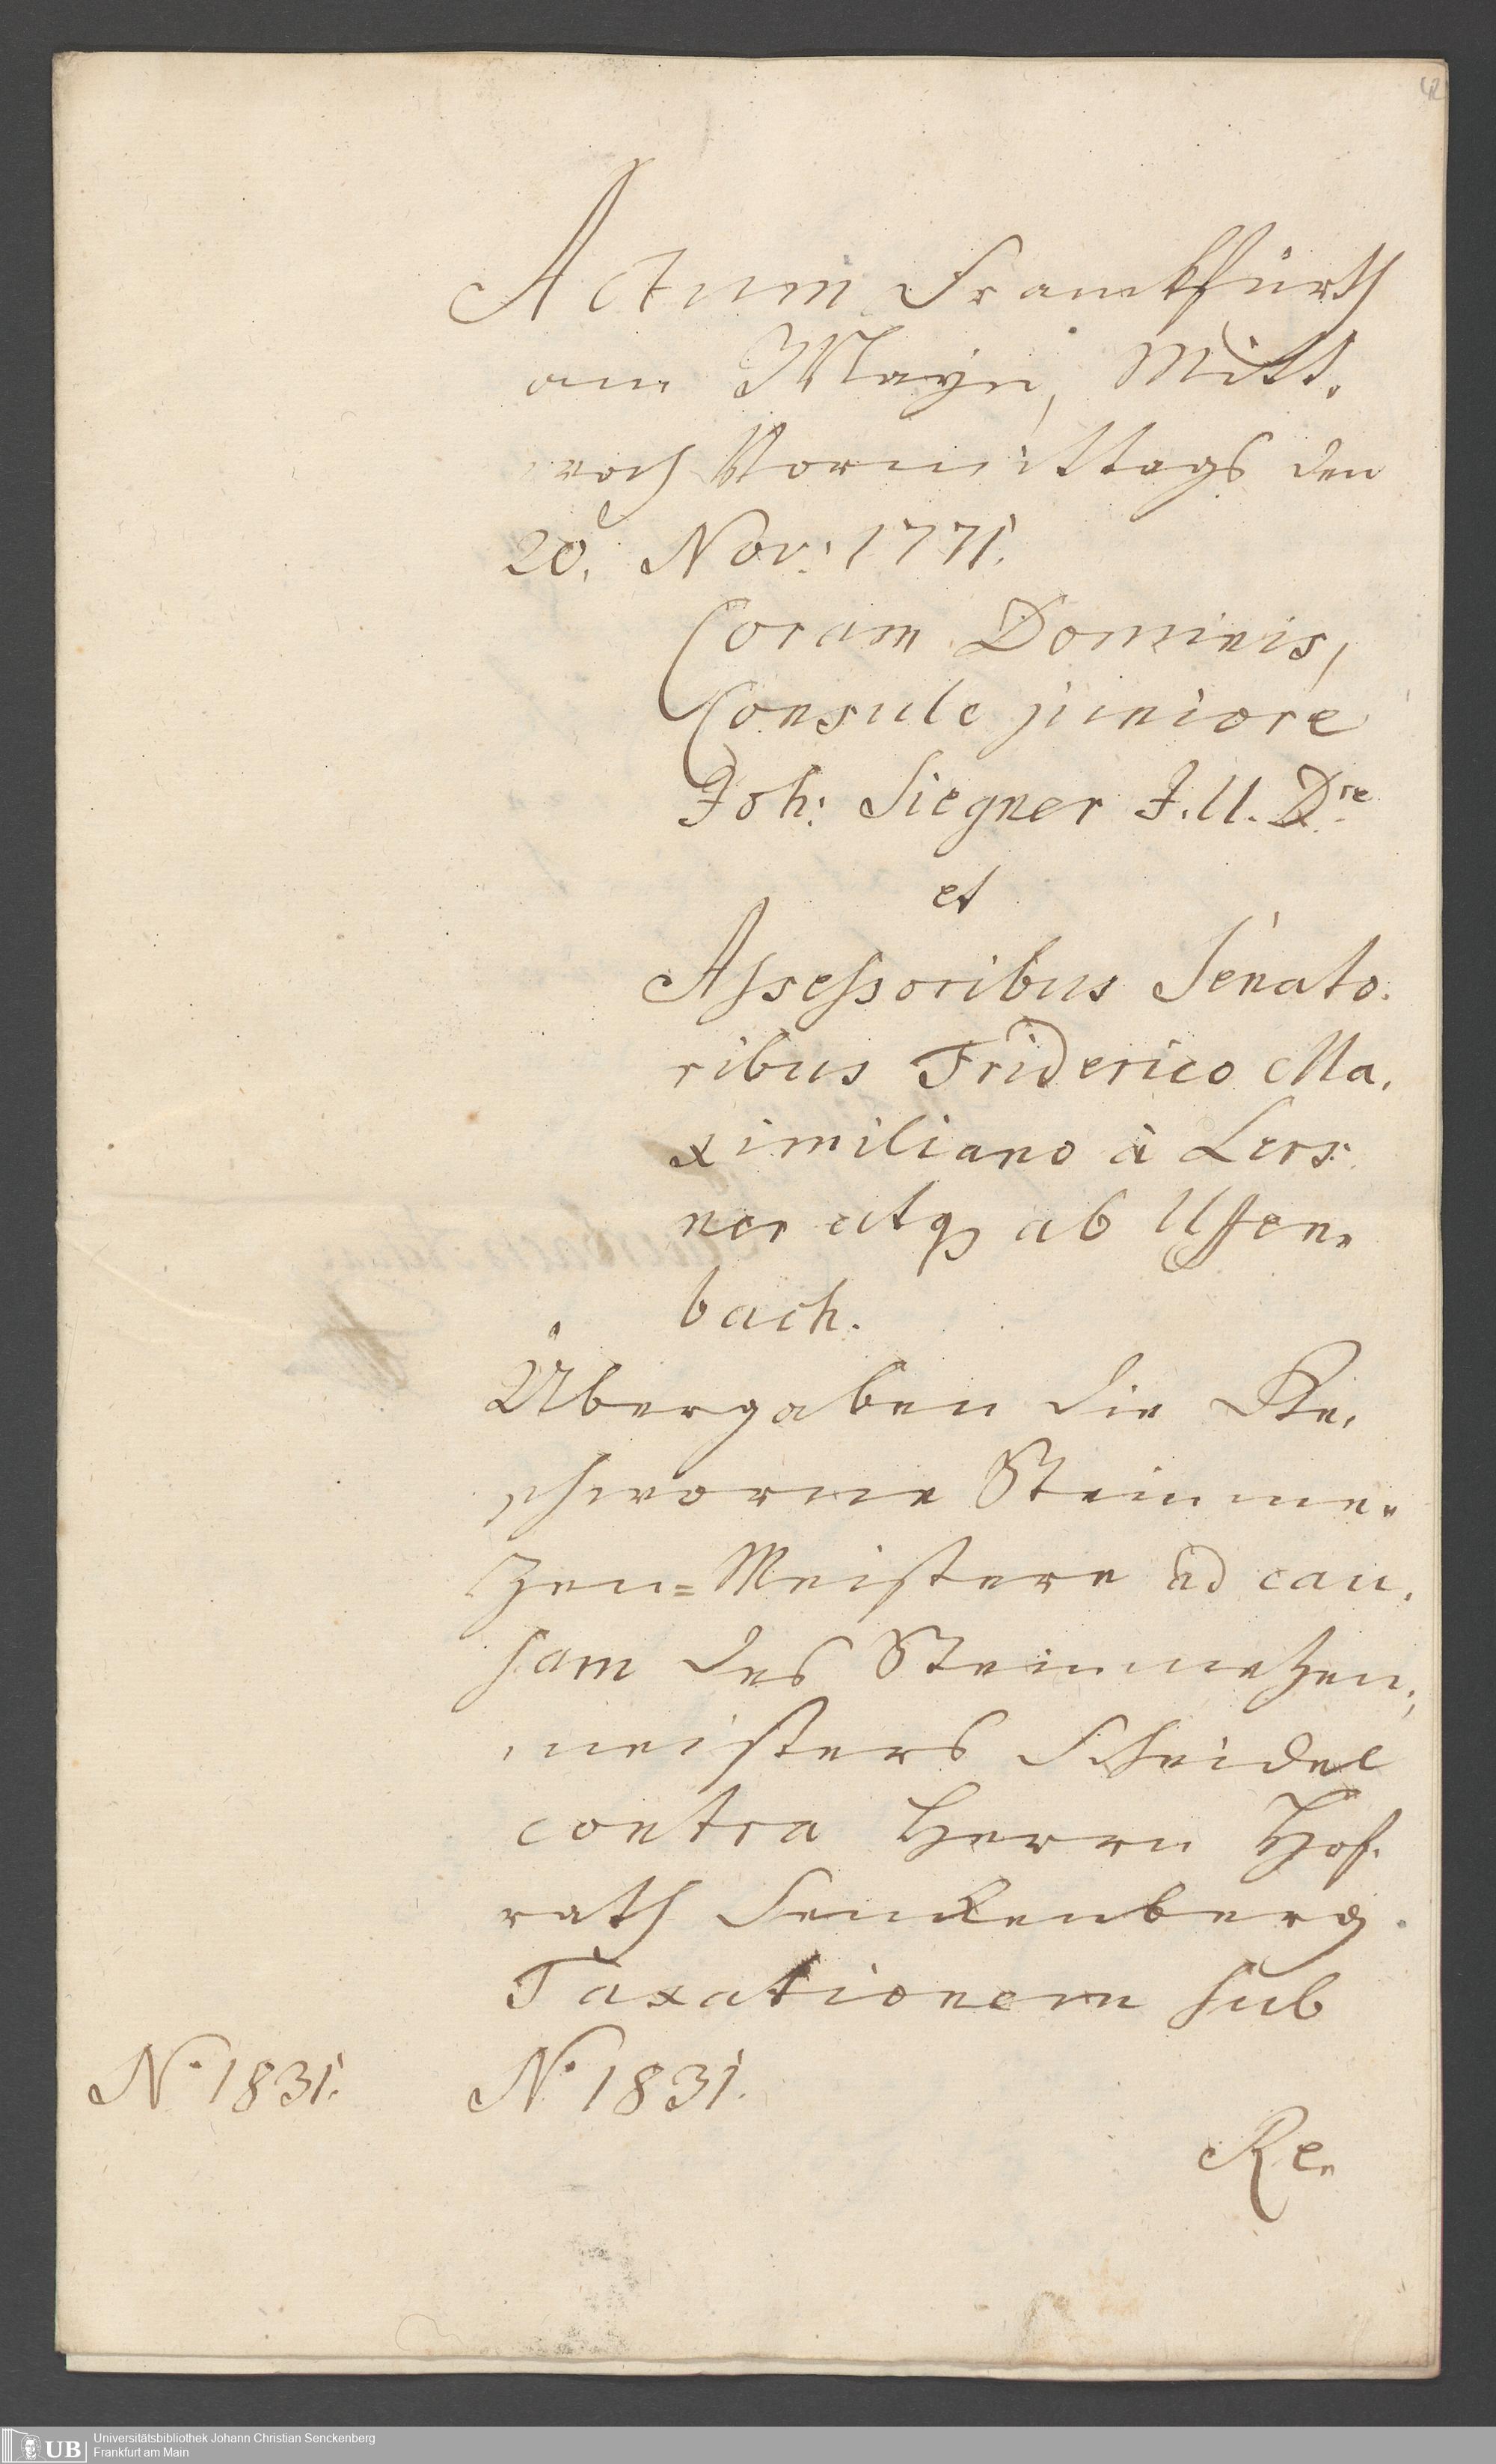 42
Actum Franckfurth
am Mayn, Mitt.
woch Vormittags den
20. Nov: 1771.
Coram Dominis,
Consule juniore
Joh: Siegner J. U. Dre
et
Assessoribus Senato.
ribus Friderico Ma.
ximiliano à Lers.
ner atq; ab Uffen.
bach.
Übergaben die Ge.
schworne Steinme.
zen=Meistere ad cau.
sam des Steinmetzen.
meisters Scheidel
contra Herrn Hof.
rath Senckenberg
Taxationem sub
No 1831. No 1831.
Re.
UB Universitätsbibliothek Johann Christian Senckenberg
Frankfurt am Main